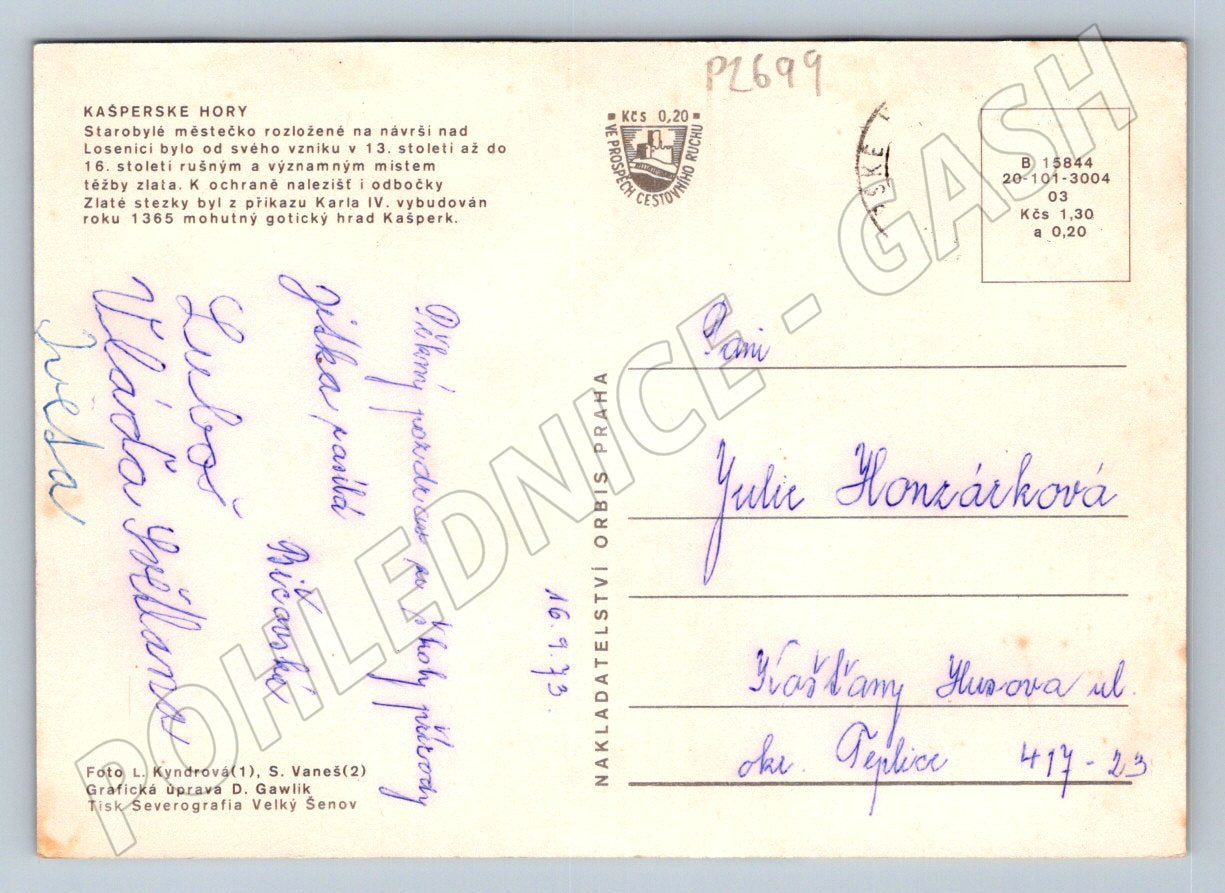 PZ699
KAŠPERSKE HORY
Starobylé městečko rozložené na návrši nad
Losenici bylo od svého vzniku v 13. stoletī až do
16. stoletī rušným a významným místem
těžby zlata. K ochraně nalezišť i odbočky
Zlaté stezky byl z příkazu Karla IV. vybudován
roku 1365 mohutný gotický hrad Kašperk.
Kčs 0,20
VE PROSPĚCH CESTOVNÍHO RUCHU
SKÉ
B 15844
20-101-3004
03
Kčs 1,30
a 0,20
Pěkný pozdrav ze školy přírody
Jitka posílá
Luboš
Vláďa Světlana
Iveta
16. 9. 73.
NAKLADATELSTVÍ ORBIS PRAHA
Paní
Julie Honzárková
Košťany Husova ul.
okr. Teplice 417-23
Foto L. Kyndrová(1), S. Vaneš(2)
Grafická úprava D. Gawlik
Tisk Severografia Velký Šenov
POHLEDNICE - GASH